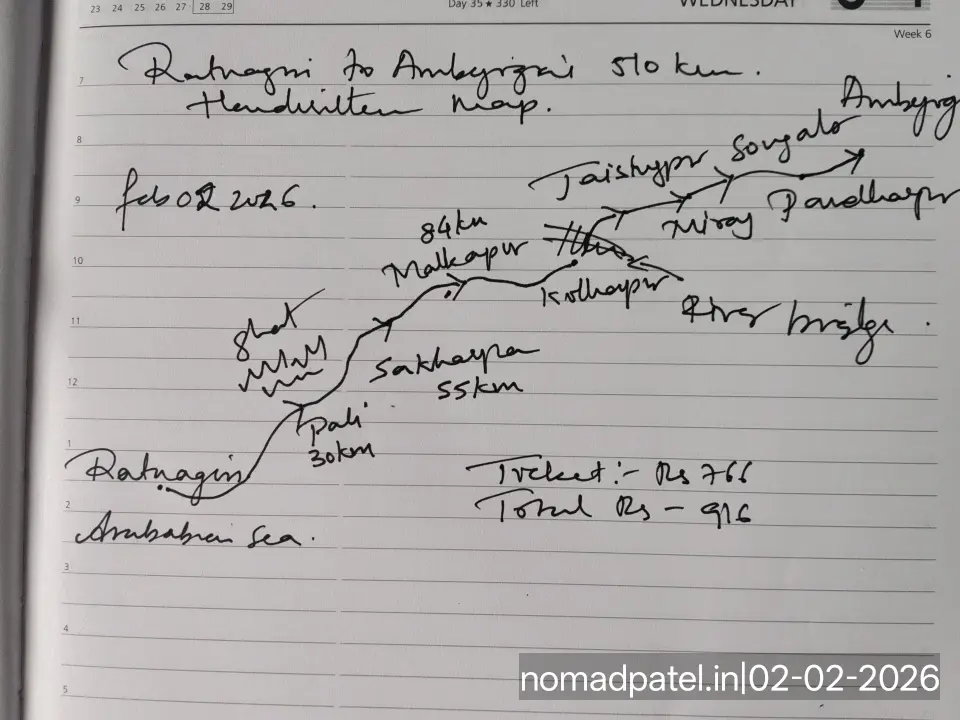 23 24 25 26 27 28 29
Day 35★330 Left
WEDNESDAY
Week 6
7
Ratnagiri to Ambejogai 510 km.
Handwritten Map.
8
Ambejog
Jaisingpur Sangola
9
feb 02 2026.
Miraj Pandharpur
84km
Malkapur
10
Kolhapur
River bridge.
11
ghat
Sakharpa
55km
12
pali
30km
1
Ratnagiri
Ticket:- Rs 766
2
Total Rs - 916
Arababian Sea.
3
4
5
nomadpatel.in|02-02-2026